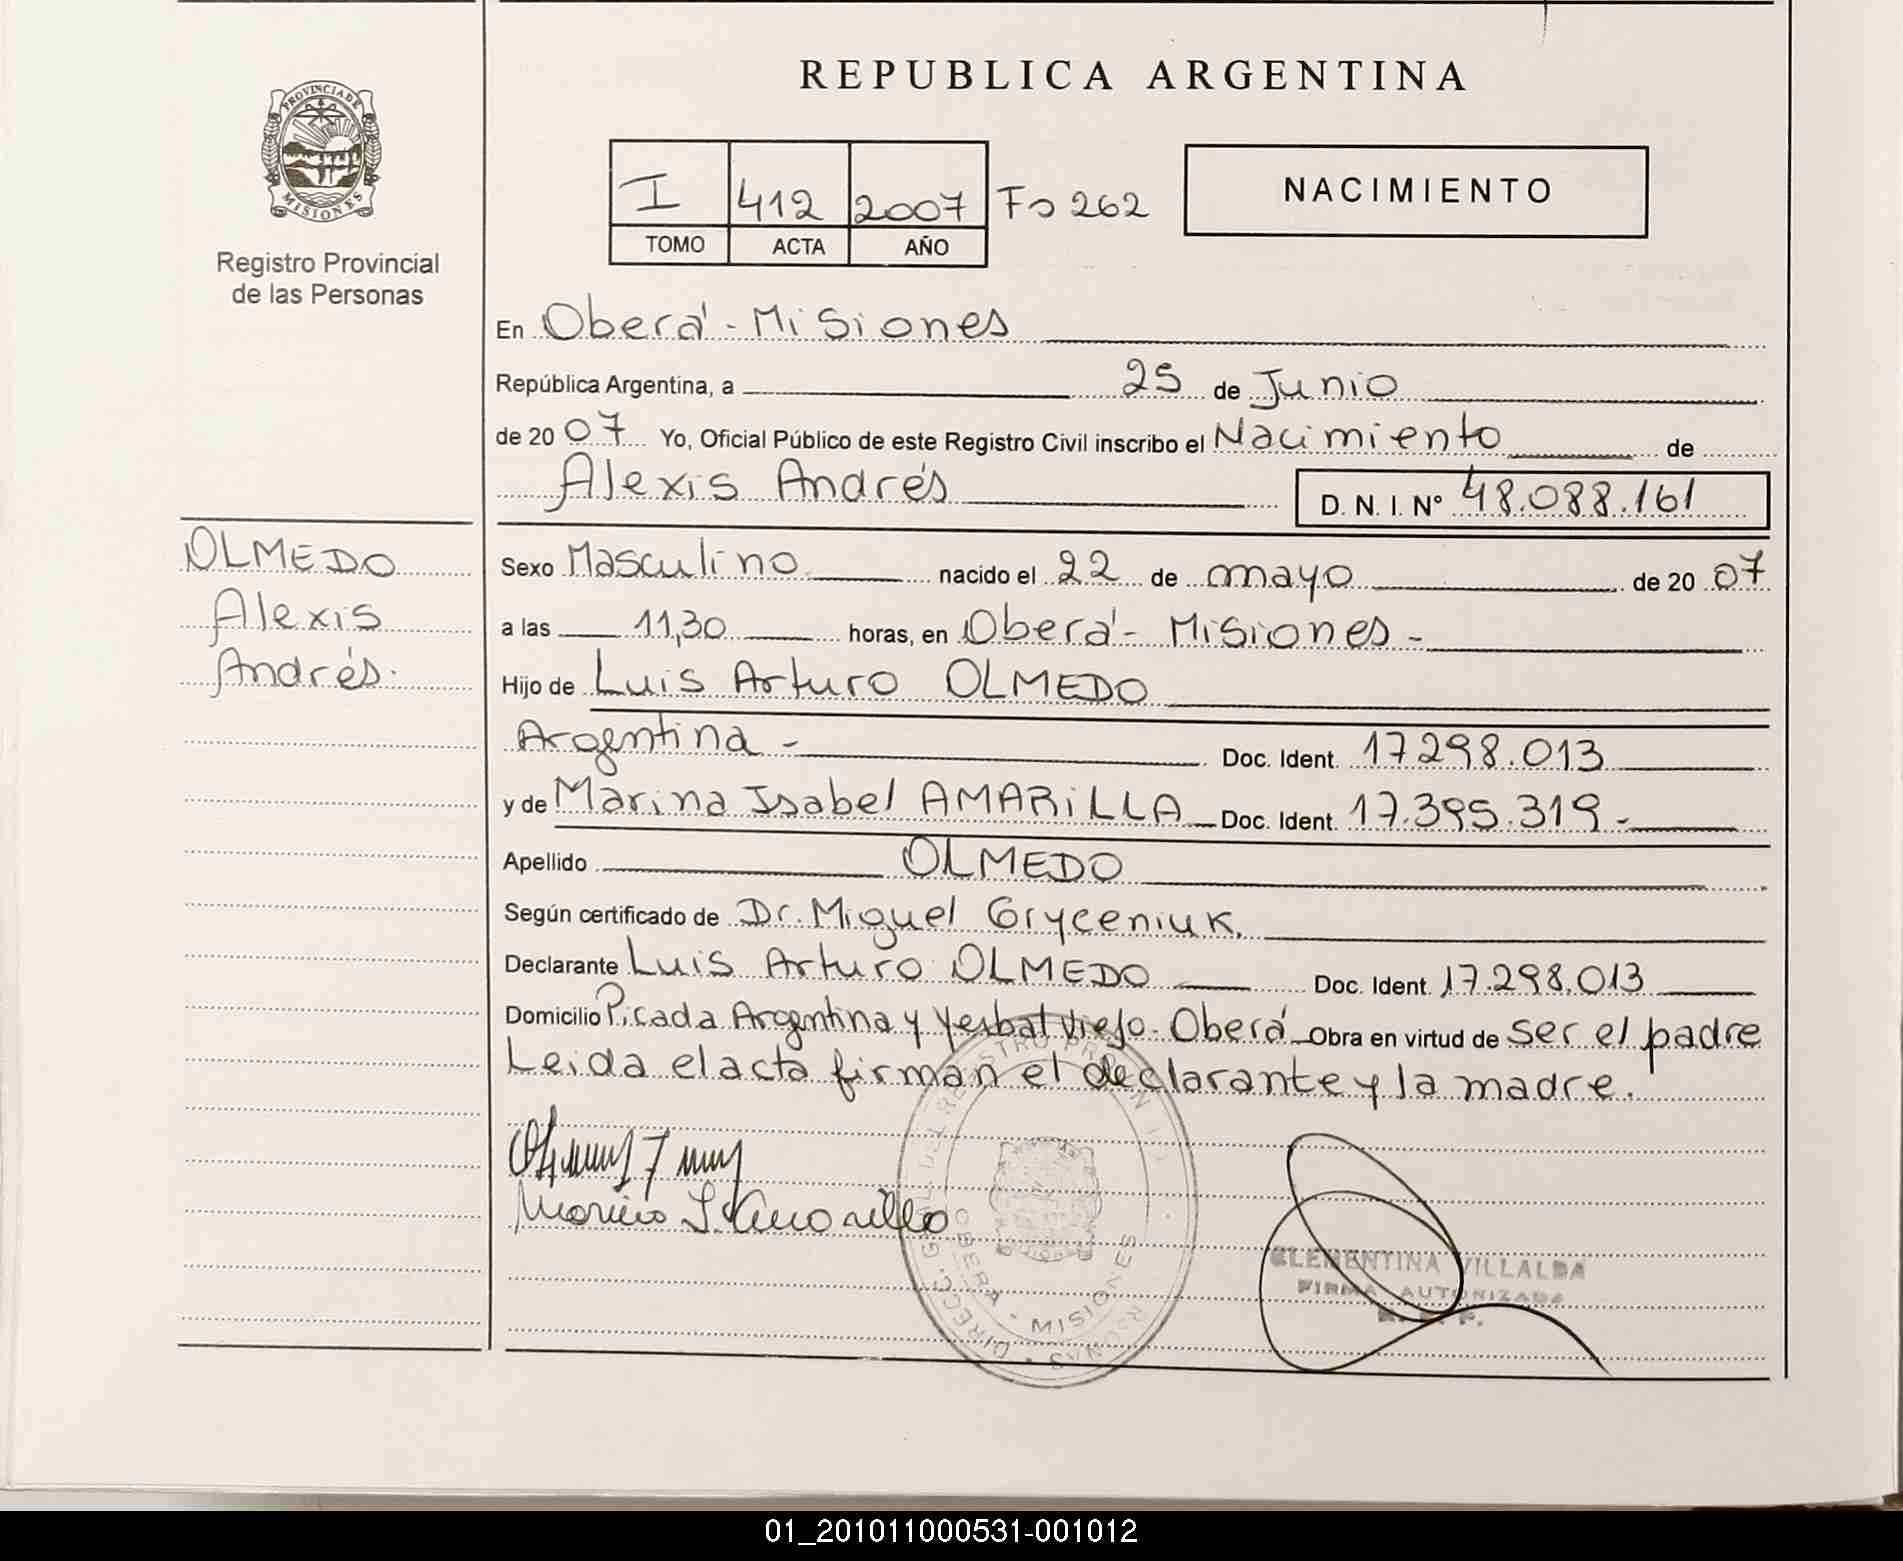 REPUBLICA ARGENTINA
PROVINCIA DE
MISIONES
Registro Provincial
de las Personas
I 412 2007 Fo 262
TOMO ACTA AÑO
NACIMIENTO
En Oberá - Misiones
República Argentina, a 25 de Junio
de 20 07 Yo, Oficial Público de este Registro Civil inscribo el Nacimiento de
Alexis Andrés D. N. I. Nº 48.088.161
OLMEDO
Alexis
Andrés.
Sexo Masculino nacido el 22 de mayo de 20 07
a las 11,30 horas, en Oberá - Misiones -
Hijo de Luis Arturo OLMEDO
Argentina - Doc. Ident. 17298.013
y de Marina Isabel AMARiLLA Doc. Ident. 17.395.319 -
Apellido OLMEDO
Según certificado de Dr. Miguel Gryceniuk.
Declarante Luis Arturo OLMEDO Doc. Ident. 17.298.013
Domicilio Picada Argentina y Yerbal Viejo - Oberá Obra en virtud de ser el padre
Leida el acta firman el declarante y la madre.
OBERA - MISIONES
CLEMENTINA VILLALBA
FIRMA AUTORIZADA
01_201011000531-001012